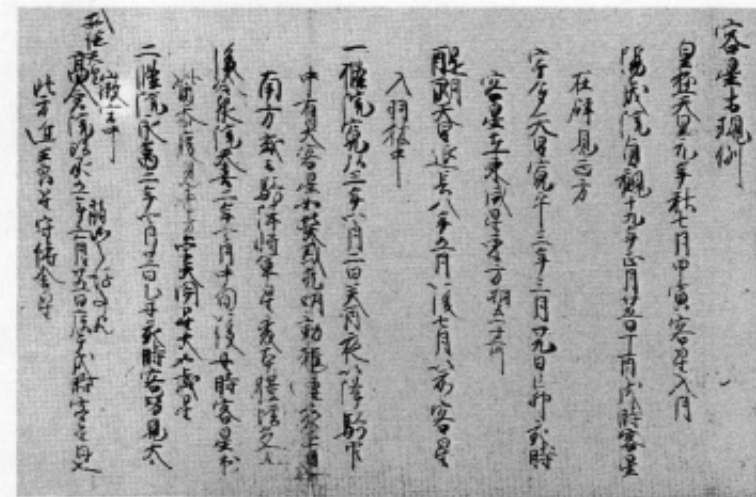 客星古現例
皇極天皇元年秋七月甲寅客星入月
陽成院貞観十九年正月廿五日丁酉戌時客星
在辟見西方
宇多天皇寛平三年三月廿九日己卯亥時
客星在東咸星東方相去一寸所
醍醐天皇延長八年五月以後七月以前客星
入羽林中
一條院寛弘三年四月二日癸酉夜以降騎官
中有大客星如熒惑光明動耀連夜正見
南方或云騎陣将軍星変本体増光歟
後冷泉院天喜二年四月中旬以後丑時客星出
觜参度見東方孛天関星大如歳星
二條院永万二年四月廿二日乙丑亥時客星見大
微宮中
高倉院治承五年六月廿五日庚午戌時客星見
北方近王良守傳舎星